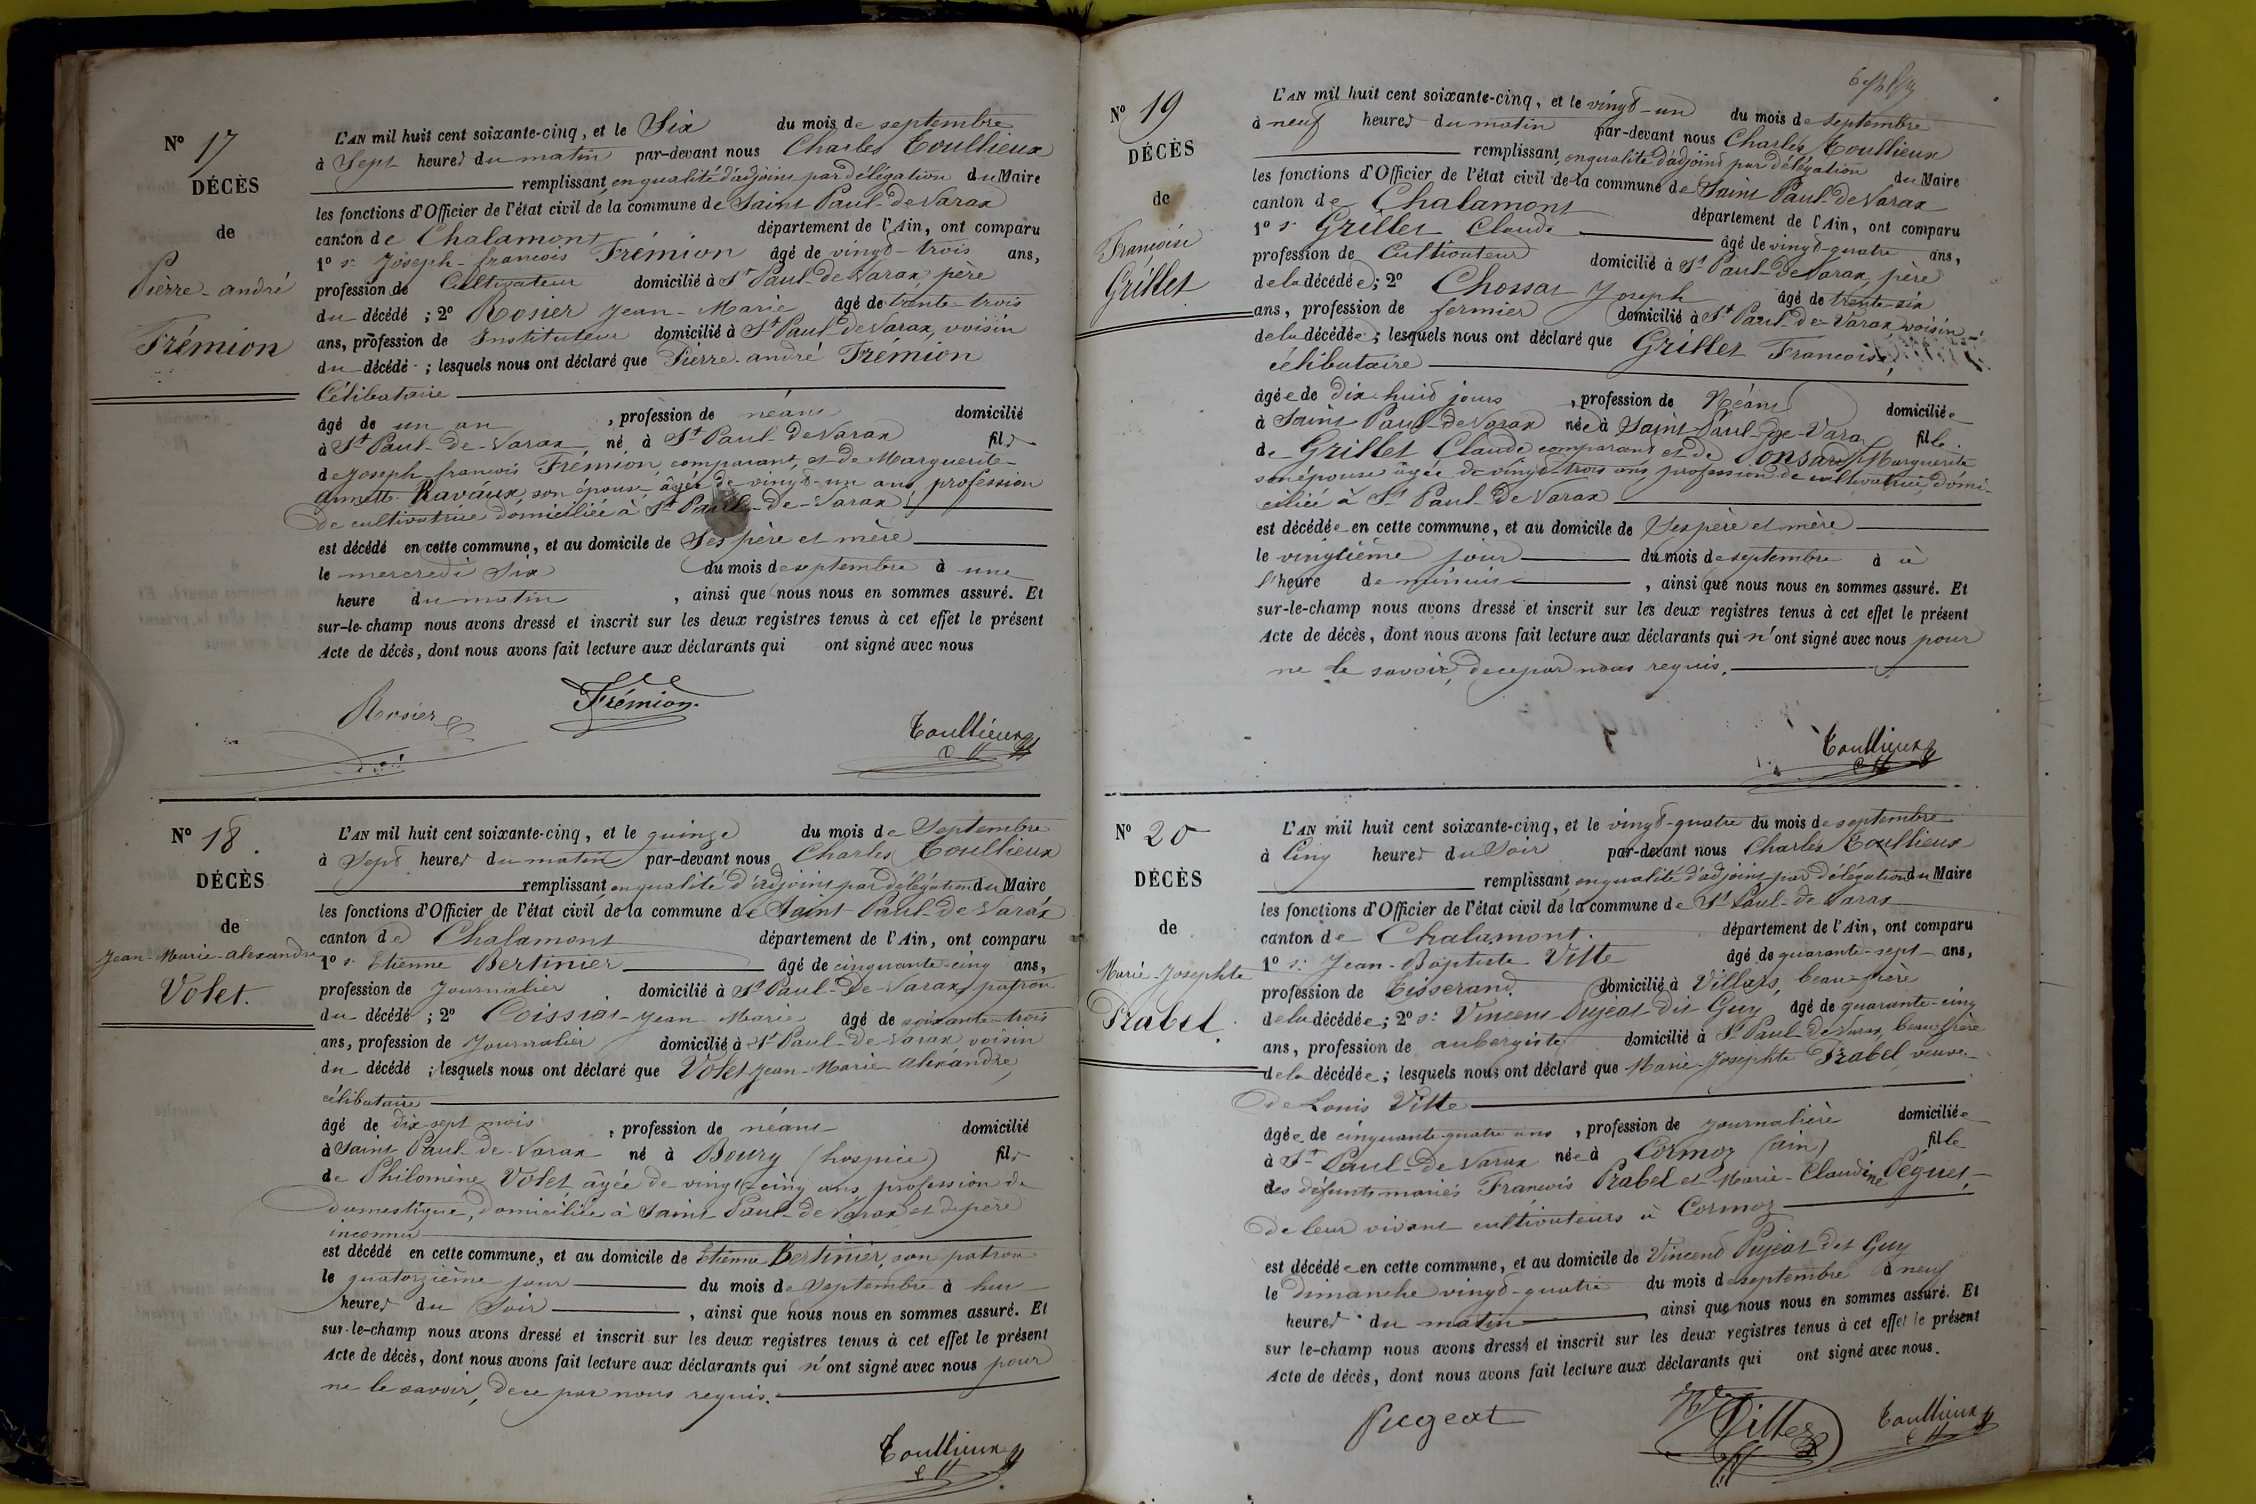 N° 17
DÉCÈS
de
Pierre-andré
Frémion
L'AN mil huit cent soixante-cinq, et le Six du mois de septembre
à Sept heures du matin par-devant nous Charles Toullieux
remplissant, en qualité d'adjoint par délégation du Maire
les fonctions d'Officier de l'état civil de la commune de Saint Paul-de Varax
canton de Chalamont département de l'Ain, ont comparu
1° sr Joseph-francois Frémion âgé de vingt-trois ans,
profession de Cultivateur domicilié à St Paul-de Varax, père
du décédé ; 2° Rosier Jean-Marie âgé de trente-trois
ans, profession de Instituteur domicilié à St Paul de Varax, voisin
du décédé ; lesquels nous ont déclaré que Pierre-andré Frémion
Célibataire
âgé de un an, profession de néant domicilié
à St Paul-de-Varax, né à St Paul-de Varax fils
de Joseph-francois Frémion, comparant, et de Marguerite-
annette Ravaux, son épouse, âgée de vingt-un ans, profession
de cultivatrice domiciliée à St Paul-De-Varax
est décédé en cette commune, et au domicile de Ses père et mère
le mercredi Six du mois de septembre à une
heure du matin, ainsi que nous nous en sommes assuré. Et
sur-le-champ nous avons dressé et inscrit sur les deux registres tenus à cet effet le présent
Acte de décès, dont nous avons fait lecture aux déclarants qui ont signé avec nous
Rosier
Frémion.
Toullieux
N° 18.
DÉCÈS
de
Jean-Marie-alexandre
Volet.
L'AN mil huit cent soixante-cinq, et le quinze du mois de Septembre
à Sept heures du matin par-devant nous Charles Toullieux
remplissant, en qualité d'adjoint par délégation du Maire
les fonctions d'Officier de l'état civil de la commune de Saint-Paul-de Varax
canton de Chalamont département de l'Ain, ont comparu
1° sr Etienne Bertinier âgé de cinquante-cinq ans,
profession de Journalier domicilié à St Paul-De-Varax, patron
du décédé ; 2° Coissiat Jean Marie âgé de soixante-trois
ans, profession de Journalier domicilié à St Paul-de-Varax voisin
du décédé ; lesquels nous ont déclaré que Volet Jean-Marie alexandre,
célibataire
âgé de dix sept mois, profession de néant domicilié
à Saint Paul-de-Varax né à Bourg (hospice) fils
de Philomène Volet âgée de vingt cinq ans, profession de
domestique, domiciliée à Saint Paul-de Varax et de père
inconnu
est décédé en cette commune, et au domicile de Etienne Bertinier, son patron
le quatorzième jour du mois de Septembre à huit
heures du Soir, ainsi que nous nous en sommes assuré. Et
sur-le-champ nous avons dressé et inscrit sur les deux registres tenus à cet effet le présent
Acte de décès, dont nous avons fait lecture aux déclarants qui n'ont signé avec nous pour
ne le savoir, de ce par nous requis.
Toullieux
N° 19
DÉCÈS
de
Françoise
Grillet
L'AN mil huit cent soixante-cinq, et le vingt-un du mois de septembre
à neuf heures du matin par-devant nous Charles Toullieux
remplissant, en qualité d'adjoint par délégation du Maire
les fonctions d'Officier de l'état civil de la commune de Saint Paul-de Varax
canton de Chalamont département de l'Ain, ont comparu
1° sr Grillet Claude âgé de vingt-quatre ans,
profession de Cultivateur domicilié à St Paul-De Varax, père
de la décédée ; 2° Chossat Joseph âgé de trente-six
ans, profession de fermier domicilié à St Paul-de-Varax, voisin
de la décédée ; lesquels nous ont déclaré que Grillet Francoise,
célibataire
âgée de dix huit jours, profession de Néant domiciliée
à Saint Paul-de Varax née à Saint Paul-de-Varax fille
de Grillet Claude comparant et de Ponsard Marguerite
son épouse âgée de vingt-trois ans, profession de cultivatrice, domi-
ciliée à St Paul-De Varax
est décédée en cette commune, et au domicile de Ses père et mère
le vingtième jour du mois de septembre à à
l'heure de minuit, ainsi que nous nous en sommes assuré. Et
sur-le-champ nous avons dressé et inscrit sur les deux registres tenus à cet effet le présent
Acte de décès, dont nous avons fait lecture aux déclarants qui n'ont signé avec nous pour
ne le savoir, de ce par nous requis.
Toullieux
N° 20
DÉCÈS
de
Marie-Josephte
Prabel.
L'AN mil huit cent soixante-cinq, et le vingt-quatre du mois de septembre
à Cinq heures du Soir par-devant nous Charles Toullieux
remplissant, en qualité d'adjoint par délégation du Maire
les fonctions d'Officier de l'état civil de la commune de St Paul-de Varax
canton de Chalamont. département de l'Ain, ont comparu
1° sr Jean-Baptiste Vitte âgé de quarante-sept ans,
profession de Tisserand domicilié à Villars, beau-frère
de la décédée ; 2° sr Vincent Pujeat dit Guy âgé de quarante-cinq
ans, profession de aubergiste domicilié à St Paul de Varax, beau frère
de la décédée ; lesquels nous ont déclaré que Marie-Josephte Prabel, veuve
de Louis Vitte
âgée de cinquante-quatre ans, profession de journalière domiciliée
à St Paul-de Varax née à Cormoz (ain) fille
des défunts mariés Francois Prabel et Marie-Claudine Péguet,
de leur vivant cultivateurs à Cormoz
est décédée en cette commune, et au domicile de Vincent Pujeat dit Guy
le dimanche vingt-quatre du mois de septembre à neuf
heures du matin, ainsi que nous nous en sommes assuré. Et
sur le-champ nous avons dressé et inscrit sur les deux registres tenus à cet effet le présent
Acte de décès, dont nous avons fait lecture aux déclarants qui ont signé avec nous.
Pugeat
Vitte
Toullieux